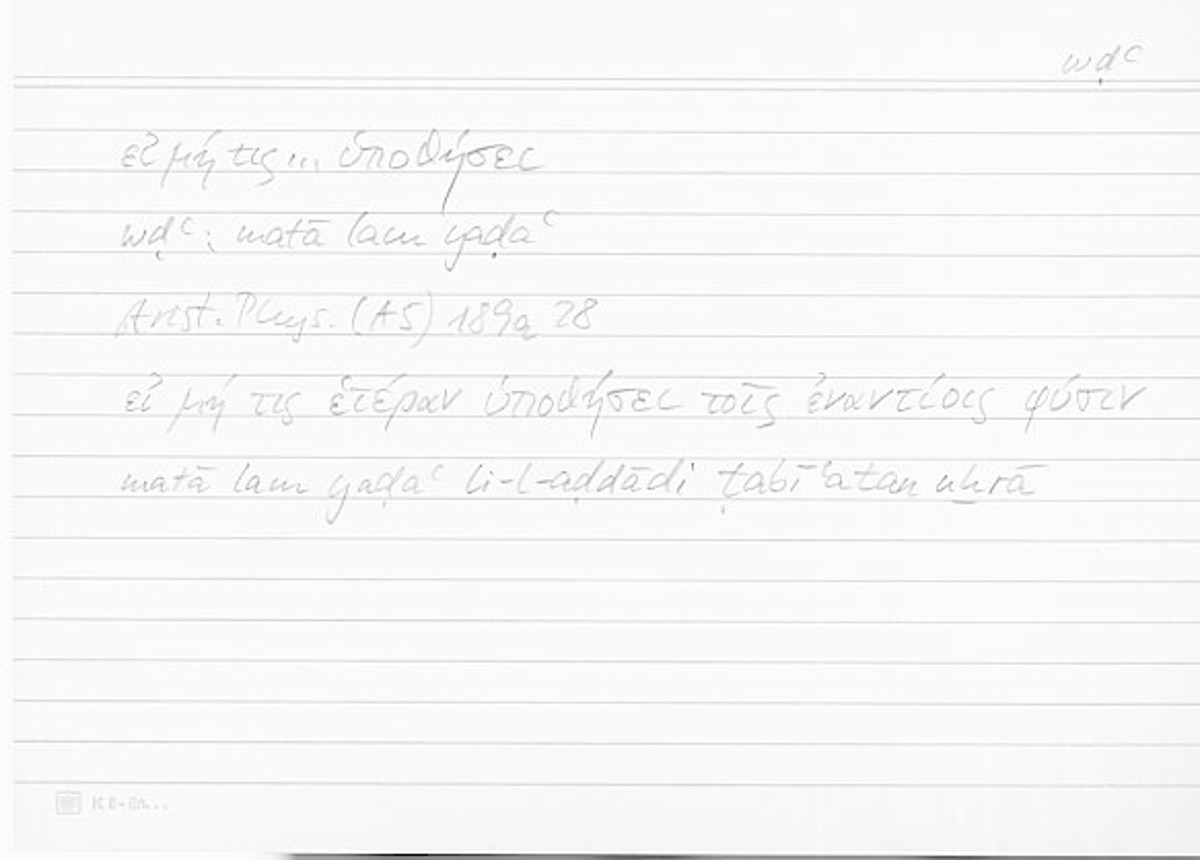 wḍʿ
εἰ μή τις ... ὑποθήσει
wḍʿ: matā lam yaḍaʿ
Arist. Phys. (A5) 189a 28
εἰ μή τις ἑτέραν ὑποθήσει τοῖς ἐναντίοις φύσιν
matā lam yaḍaʿ li-l-aḍdādi ṭabīʿatan uḫrā